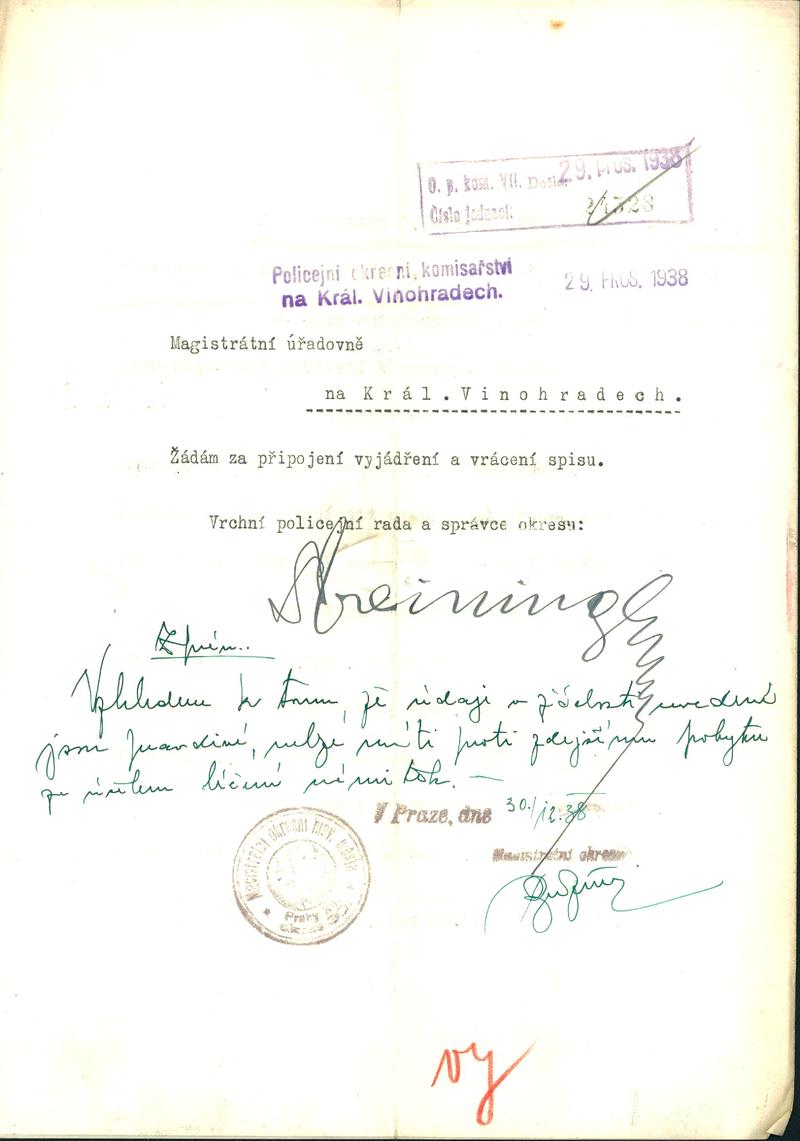 O. p. kom. VII. Došlo: 29. PROS. 1938
Číslo jednací:
Policejní okresní komisařství
na Král. Vinohradech.
29. PROS. 1938
Magistrátní úřadovně
na Král. Vinohradech.
Žádám za připojení vyjádření a vrácení spisu.
Vrchní policejní rada a správce okresu:
Vzhledem k tomu, že údaje v žádosti uvedené
jsou pravdivé, nelze míti proti zdejšímu pobytu
za účelem léčení námitek. —
V Praze, dne 30./12.38
Magistrátní okresní
Magistrátní okresní hlav. města
Prahy
vy